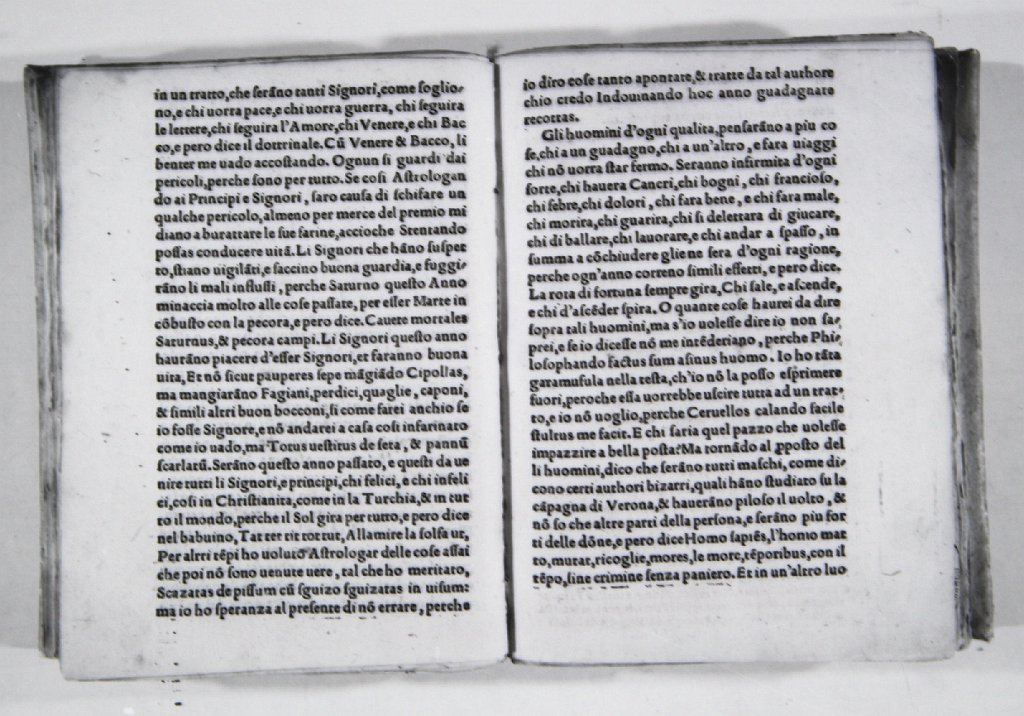 in un tratto,che serãno tanti Signori,come soglio-
no,e chi uorra pace,e chi uorra guerra, chi seguira
le lettere,chi seguira l'Amore,chi Venere,e chi Bac
co,e pero dice il dottrinale. Cũ Venere & Bacco, li
benter me uado accostando. Ognun si guardi dai
pericoli,perche sono per tutto. Se cosi Astrologan
do ai Principi e Signori, saro causa di schifare un
qualche pericolo,almeno per merce del premio mi
diano a burattare le sue farine,accioche Stentando
possas conducere uitã. Li Signori che hãno suspet
to,stiano uigilãti,e faccino buona guardia,e fuggi-
rãno li mali influssi, perche Saturno questo Anno
minaccia molto alle cose passate, per esser Marte in
cõbusto con la pecora,e pero dice. Cauete mortales
Saturnus,& pecora campi. Li Signori questo anno
haurãno piacere d'esser Signori,et faranno buona
uita, Et nõ sicut pauperes sepe mãgiãdo Cipollas,
ma mangiarãno Fagiani,perdici, quaglie, caponi,
& simili altri buon bocconi,si come farei anchio se
io fosse Signore,e nõ andarei a casa cosi infarinato
come io uado,ma Totus uestitus de seta, & pannũ
scarlatũ. Serãno questo anno passato, e questi da ue
nire tutti li Signori,e principi,chi felici, e chi infeli
ci,cosi in Christianita,come in la Turchia,& in tut
to il mondo,perche il Sol gira per tutto,e pero dice
nel babuino, Tat ter tit tot tut, Allamire la solfa ut,
Per altri tẽpi ho uoluto Astrologar delle cose assai
che poi nõ sono uenute uere, tal che ho meritato,
Scazatas de pissum cũ sguizo sguizatas in uisum:
ma io ho speranza al presente di nõ errare, perche
io diro cose tanto apontate,& tratte da tal authore
chio credo Indouinando hoc anno guadagnare
recottas.
Gli huomini d'ogni qualita,pensarãno a piu co
se,chi a un guadagno,chi a un'altro, e fara uiaggi
chi nõ uorra star fermo. Seranno infirmita d'ogni
sorte,chi hauera Cancri,chi bogni, chi francioso,
chi febre,chi dolori, chi fara bene, e chi fara male,
chi morira,chi guarira,chi si delettara di giucare,
chi di ballare,chi lauorare,e chi andar a spasso, in
summa a cõchiudere gliene sera d'ogni ragione,
perche ogn'anno correno simili effetti, e pero dice.
La rota di fortuna sempre gira, Chi sale, e ascende,
e chi d'ascẽder spira. O quante cose haurei da dire
sopra tali huomini,ma s'io uolesse dire io non sa-
prei,e se io dicesse nõ me intẽderiano, perche Phi-
losophando factus sum asinus huomo. Io ho tãta
garamufula nella testa,ch'io nõ la posso esprimere
fuori,peroche essa uorrebbe uscire tutta ad un trat-
to,e io nõ uoglio,perche Ceruellos calando facile
stultus me facit. E chi saria quel pazzo che uolesse
impazzire a bella posta?Ma tornãdo al ꝓposto del
li huomini,dico che serãno tutti maschi, come di-
cono certi authori bizarri,quali hãno studiato su la
cãpagna di Verona,& hauerãno piloso il uolto, &
nõ so che altre parti della persona,e serãno piu for
ti delle dõne,e pero dice Homo sapiẽs,l'homo mat
to,mutat,ricoglie,mores,le more,tẽporibus,con il
tẽpo,sine crimine senza paniero. Et in un'altro luo